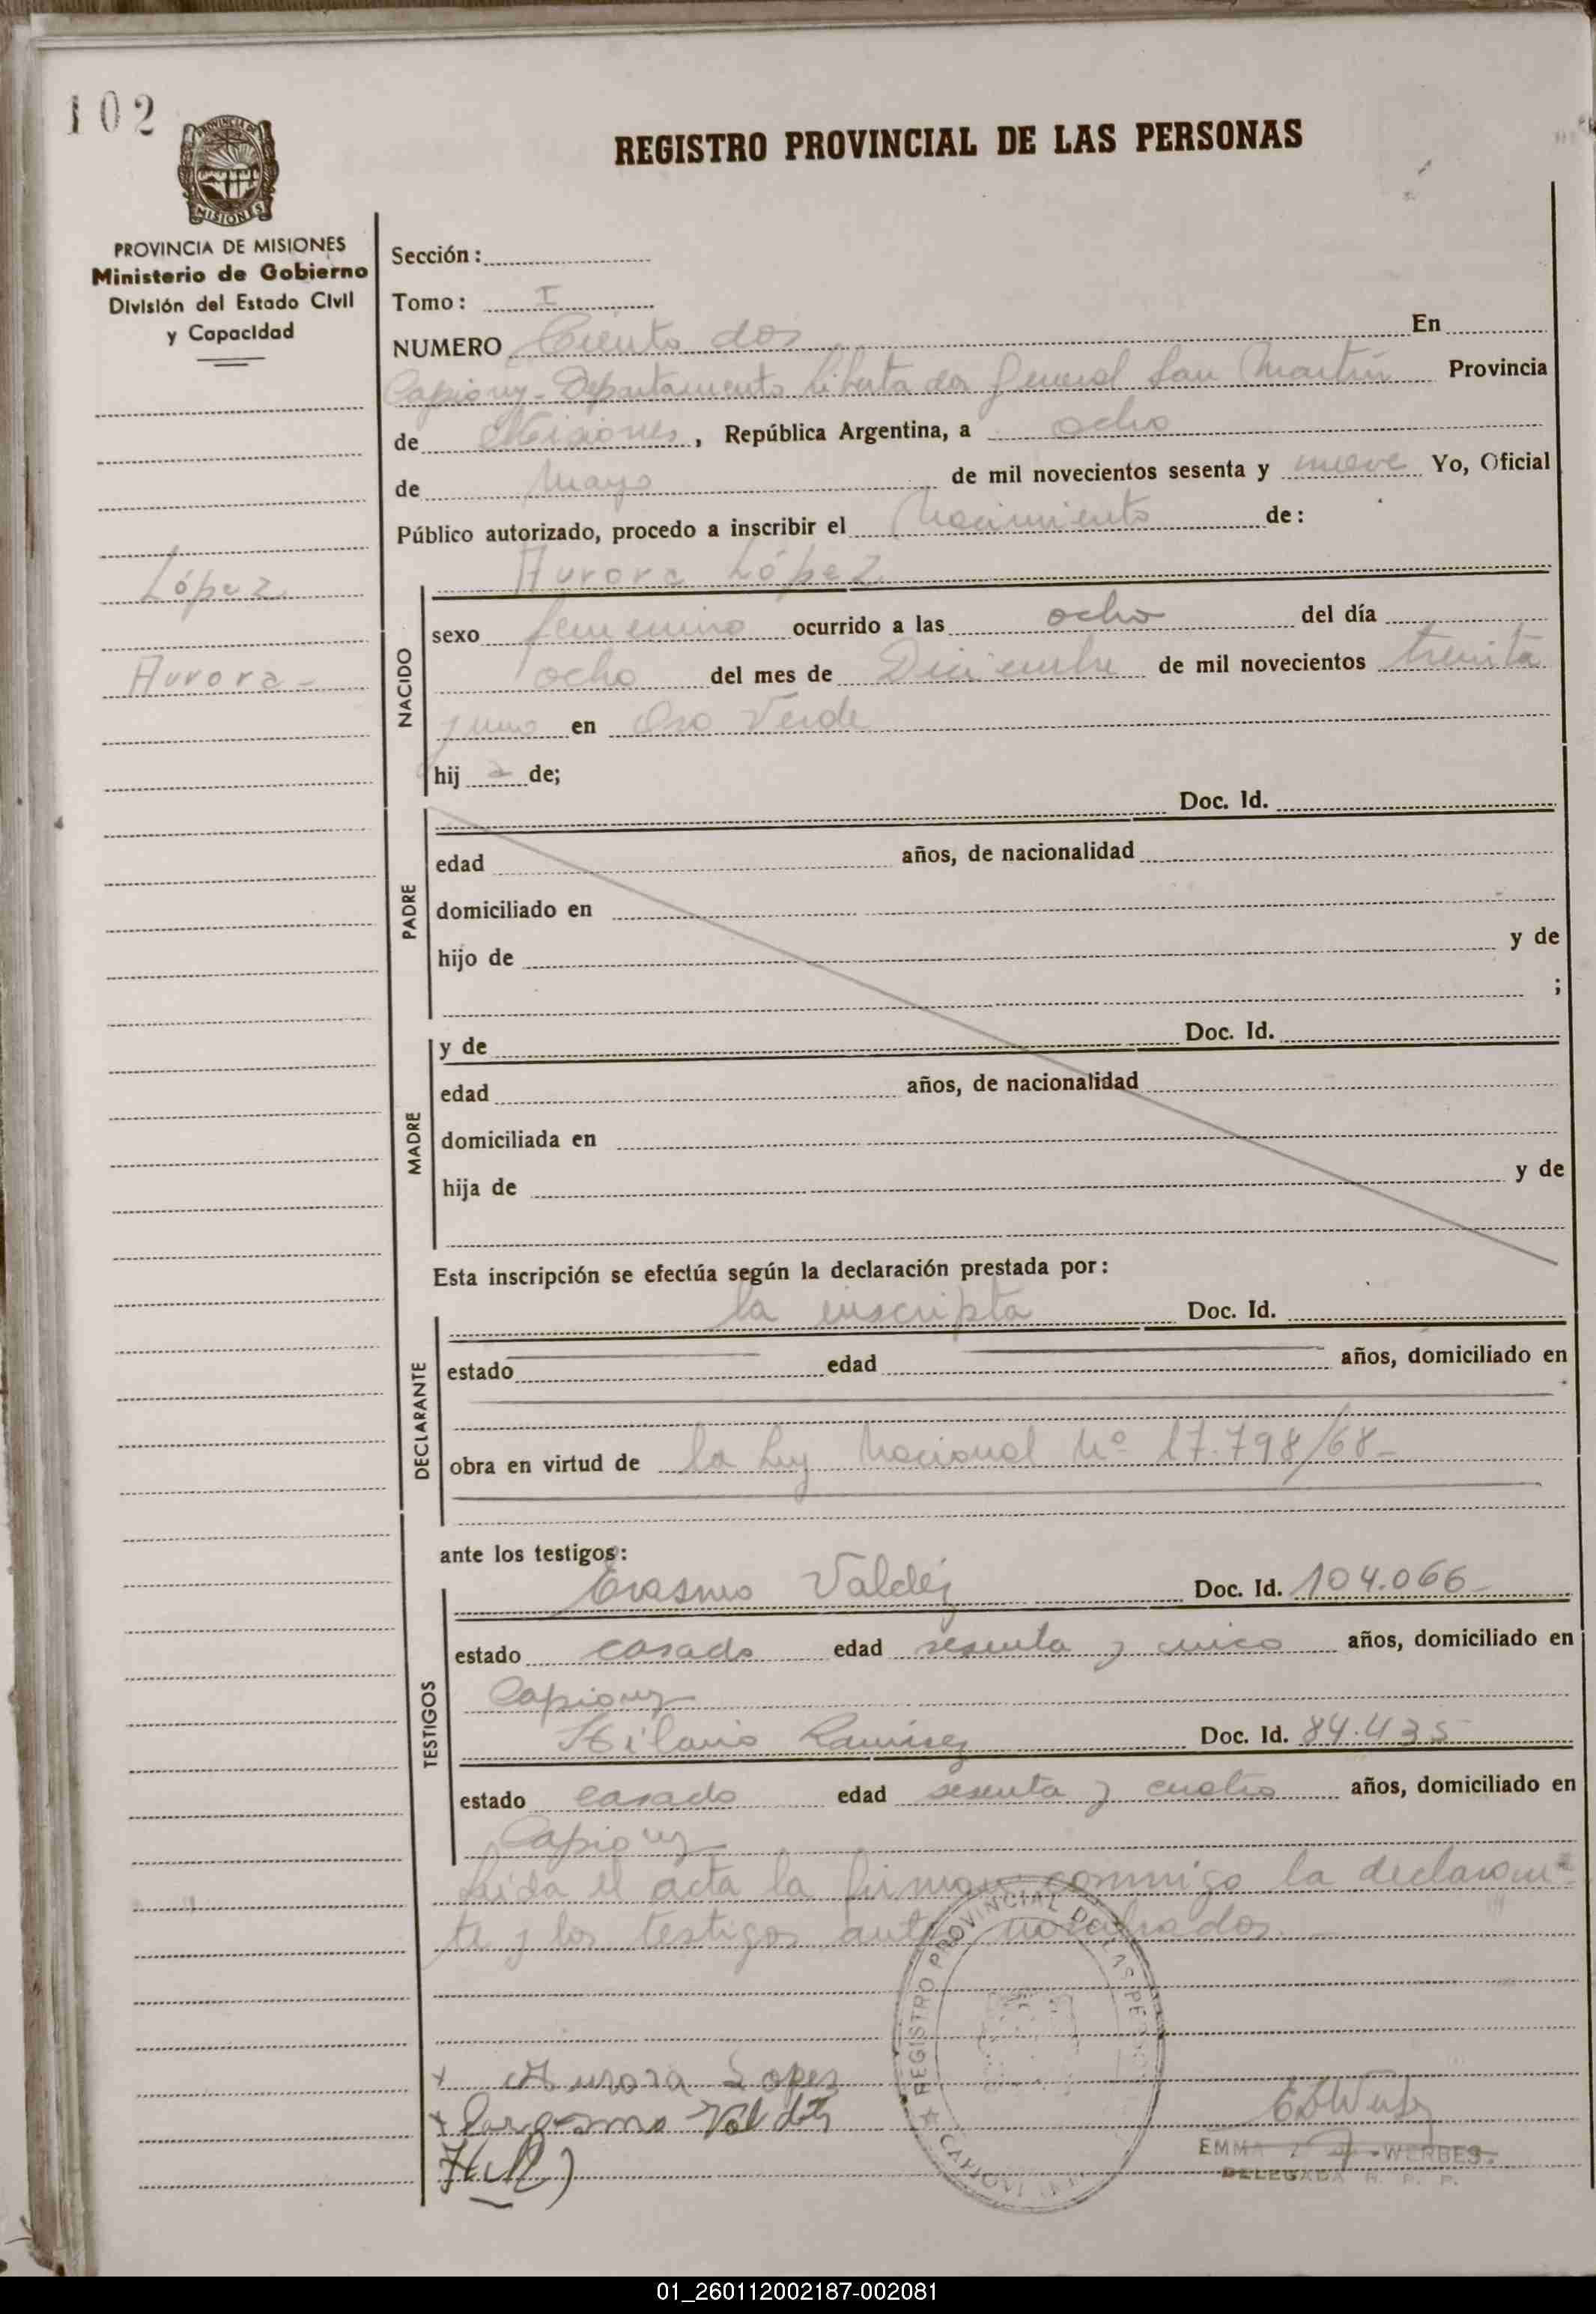 102
REGISTRO PROVINCIAL DE LAS PERSONAS
PROVINCIA DE MISIONES
Ministerio de Gobierno
División del Estado Civil
y Capacidad
López
Aurora-
Sección:
Tomo: I
NUMERO Ciento dos En
Capiovy-Departamento Libertador General San Martín Provincia
de Misiones, República Argentina, a ocho
de Mayo de mil novecientos sesenta y nueve Yo, Oficial
Público autorizado, procedo a inscribir el Nacimiento de:
Aurora López
NACIDO
sexo femenino ocurrido a las ocho del día
ocho del mes de Diciembre de mil novecientos treinta
y uno en Oro Verde
hij a de;
PADRE
Doc. Id.
edad años, de nacionalidad
domiciliado en
hijo de y de
;
MADRE
y de Doc. Id.
edad años, de nacionalidad
domiciliada en
hija de y de
Esta inscripción se efectúa según la declaración prestada por:
DECLARANTE
la inscripta Doc. Id.
estado edad años, domiciliado en
obra en virtud de la Ley Nacional Nº 17.798/68-
ante los testigos:
TESTIGOS
Erasmo Valdéz Doc. Id. 104.066-
estado casado edad sesenta y cinco años, domiciliado en
Capiovy
Hilario Ramírez Doc. Id. 84.435
estado casado edad sesenta y cuatro años, domiciliado en
Capiovy
Leida el acta la firman conmigo la declaran-
te y los testigos antes nombrados.
REGISTRO PROVINCIAL DE LAS PE
CAPIOVI
x Aurora Lopez
x Valdéz
EMMA WERBES
DELEGADA R. P. P.
01_260112002187-002081